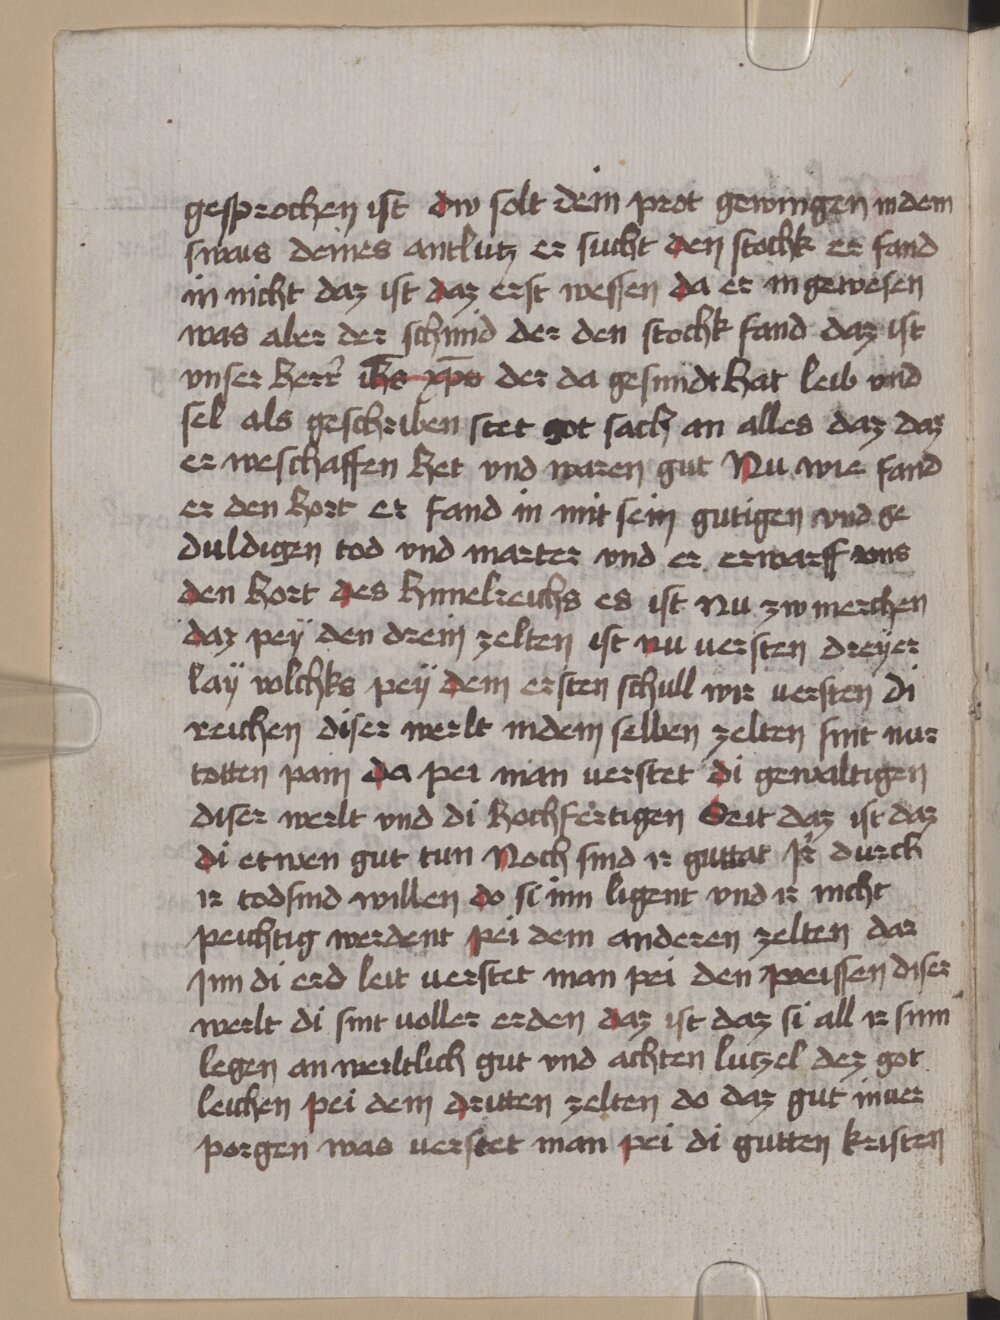 gesprochen ist diw solt dein prot gewingen in dem
swais deines antlutz er sucht den stochk er fand
in nicht daz ist daz erst wessen da er in gewesen
was aber der schmid der den stochk fand daz ist
vnser herr ihs xps der da gesundt hat leib vnd
sel als geschriben stet got sach an alles daz daz
er weschaffen het vnd waren gut Nu wie fand
er den hort er fand in mit sein gutigen vnd ge
duldigen tod vnd marter vnd er erwarff uns
den hort des himelreichs es ist nu zw merchen
daz peÿ den drein zelten ist nu versten dreÿer
laÿ volchks peÿ dem ersten schull wir versten di
reichen diser werlt in dem selben zelten sint nur
totten pain da pei man verstet di gewaltigen
diser werlt vnd di hochfertigen daz ist daz
di etwen gut tun Noch sind ir guttat durch
ir todsund willen do si inn ligent vnd ir nicht
peichtig werdent pei dem anderen zelten dar
Inn di erd leit verstet man pei den weissen diser
werlt di sint voller erden daz ist daz si all ir sinn
legen an werltlich gut vnd achten lutzel dez got
leichen pei dem dritten zelten do daz gut in ver
porgen was verstet man pei di gutten kristen